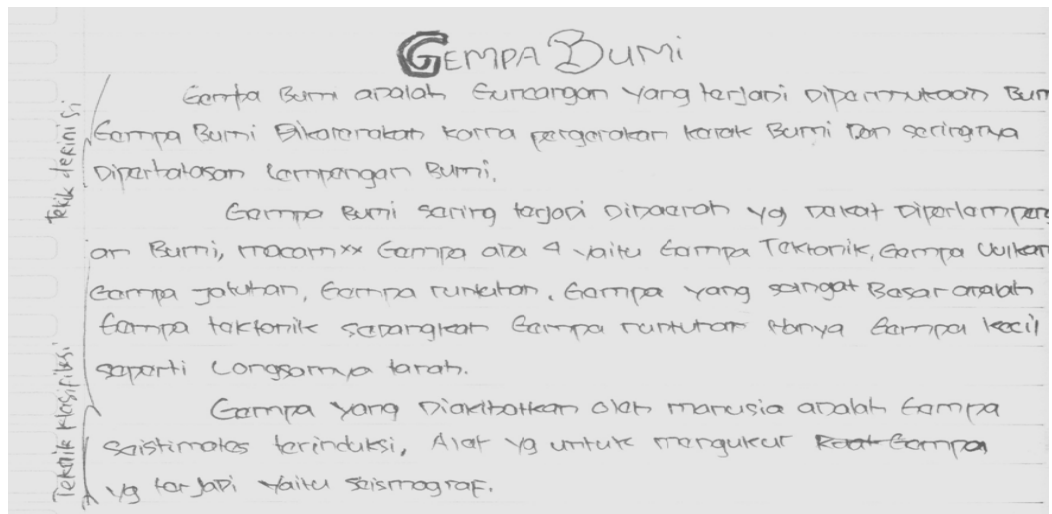 GEMPA BUMI
Gempa Bumi adalah Guncangan yang terjadi Dipermukaan Bum
Gempa Bumi Dikarenakan karna pergerakan kerak Bumi Dan seringnya
Diperbatasan Lempengan Bumi.
Gempa Bumi sering terjadi Didaerah yg Dekat Diperlempeng
an Bumi, macam xx Gempa ada 4 yaitu Gempa Tektonik, Gempa Vulkan
Gempa jatuhan, Gempa runtuhan. Gempa yang sangat Besar adalah
Gempa tektonik sedangkan Gempa runtuhan Hanya Gempa kecil
seperti Longsornya tanah.
Gempa yang Diakibatkan oleh manusia adalah Gempa
seistimates terinduksi, Alat yg untuk mengukur Gempa
yg terjadi yaitu seismograf.
Teknik definisi
Teknik klasifikasi